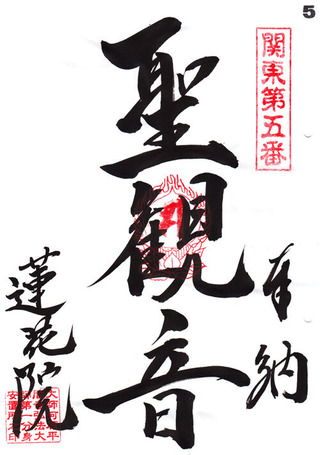 5
関東第五番
奉納
聖観音
蓮花院